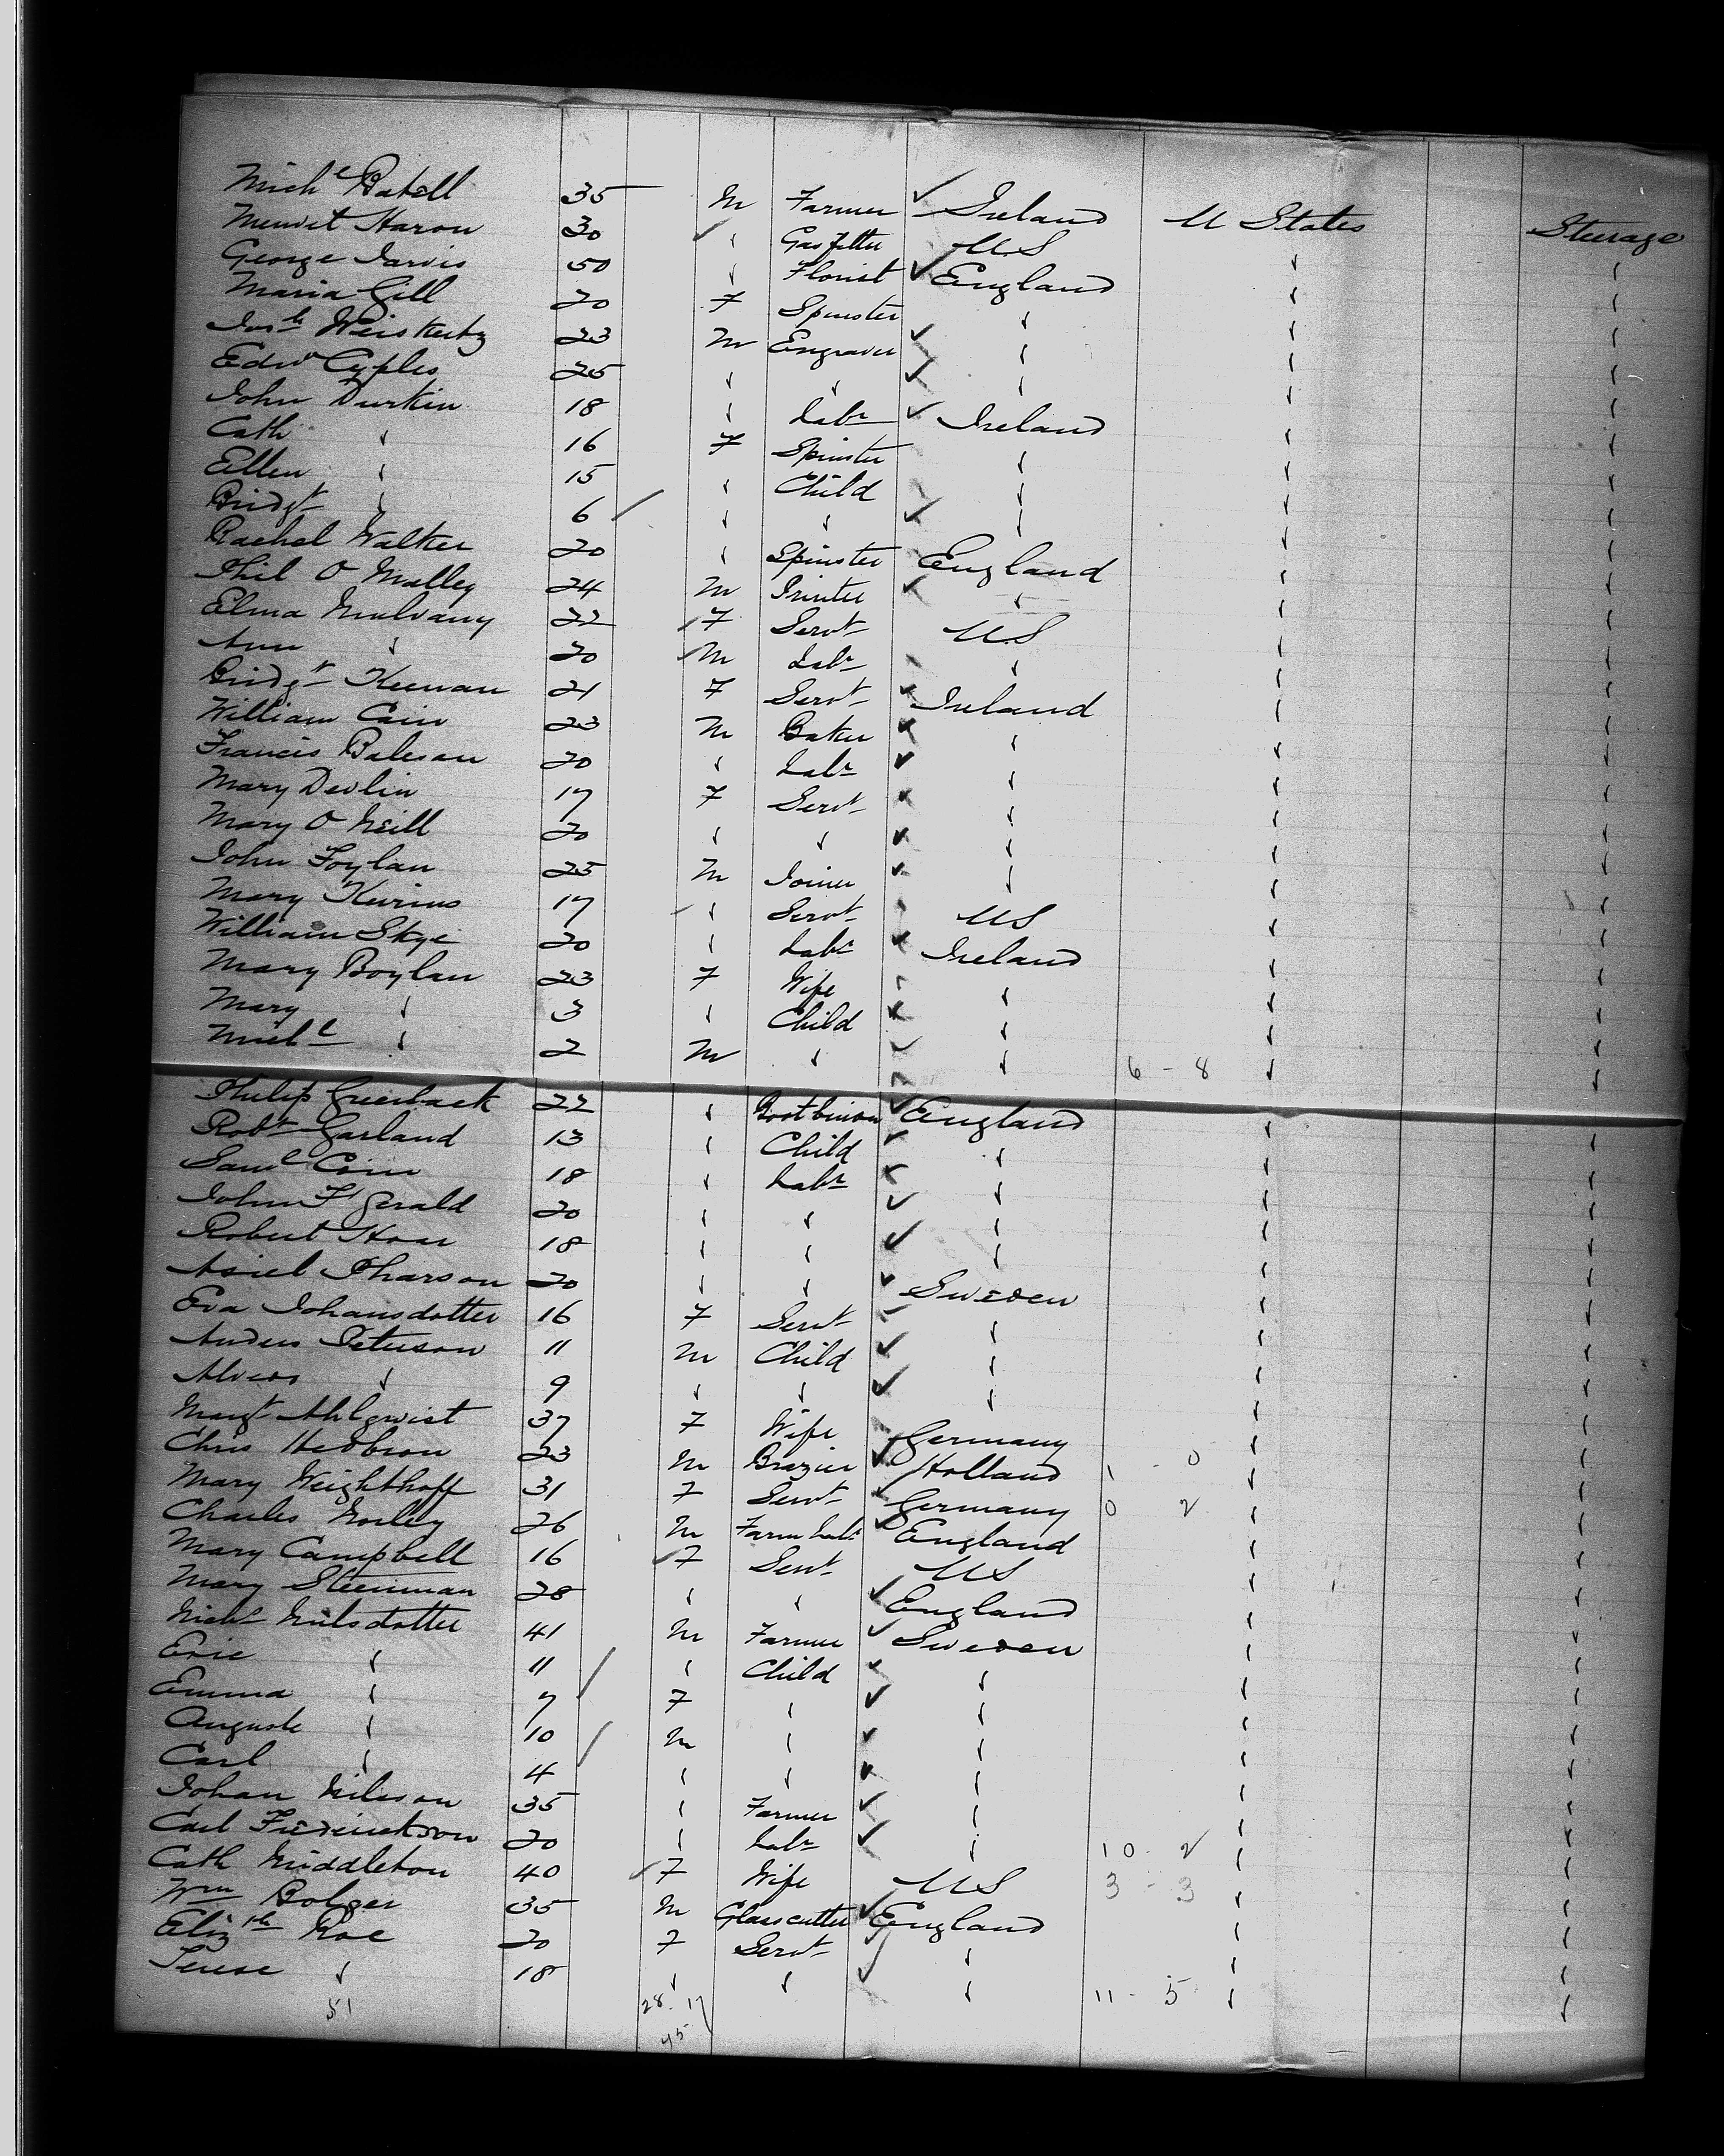 Mich^l Batell 35 M Farmer Ireland U States Steerage
Haron 30 " Gasfitter US " "
George Jarvis 50 " Florist England " "
Maria Gill 20 F Spinster " " "
Jos^h 23 M Engraver " " "
Edw^d Cyples 25 " " " " "
John Durkin 18 " Lab^r Ireland " "
Cath " 16 F Spinster " " "
Ellen " 15 " Child " " "
Bridg^t " 6 " " " " "
Rachel Walker 20 " Spinster England " "
Phil O Malley 24 M Printer " " "
Elma Mulvany 22 F Serv^t US " "
Ann " 20 M Lab^r " " "
Bridg^t Keenan 21 F Serv^t Ireland " "
William Cain 23 M Baker " " "
Francis Baleson 20 " Lab^r " " "
Mary Devlin 17 F Serv^t " " "
Mary O Neill 20 " " " " "
John Foylan 25 M Joiner " " "
Mary 17 " Serv^t US " "
William Skye 20 " Lab^r Ireland " "
Mary Boylan 23 F Wife " " "
Mary " 3 " Child " " "
Mich^l " 2 M " " 6 - 8 " "
Philip 22 " England " "
Rob^t Garland 13 " Child " " "
Sam^l 18 " Lab^r " " "
John F Gerald 20 " " " " "
Robert Hoar 18 " " " " "
Pharson 20 " " Sweden " "
Eva Johansdotter 16 F Serv^t " " "
Anders Peterson 11 M Child " " "
" 9 " " " " "
Marg^t Ahlqwist 37 F Wife Germany " "
Chris 23 M Brazier Holland 1 - 0 " "
Mary Weighthoff 31 F Serv^t Germany 0 2 " "
Charles Morley 26 M Farm Lab^r England " "
Mary Campbell 16 F Serv^t US " "
Mary Steinman 28 " " England " "
Nilsdotter 41 M Farmer Sweden " "
Eric " 11 " Child " " "
Emma " 7 F " " " "
August " 10 M " " " "
Carl " 4 " " " " "
Johan Nilsson 35 " Farmer " " "
Carl Fredrickson 20 " Lab^r " 10 - 2 " "
Cath Middleton 40 F Wife US 3 - 3 " "
W^m Bolger 35 M Glasscutter England " "
Eliz^th Roe 20 F Serv^t " " "
Terese " 18 " " " 11 - 5 " "
51 28 - 17
45